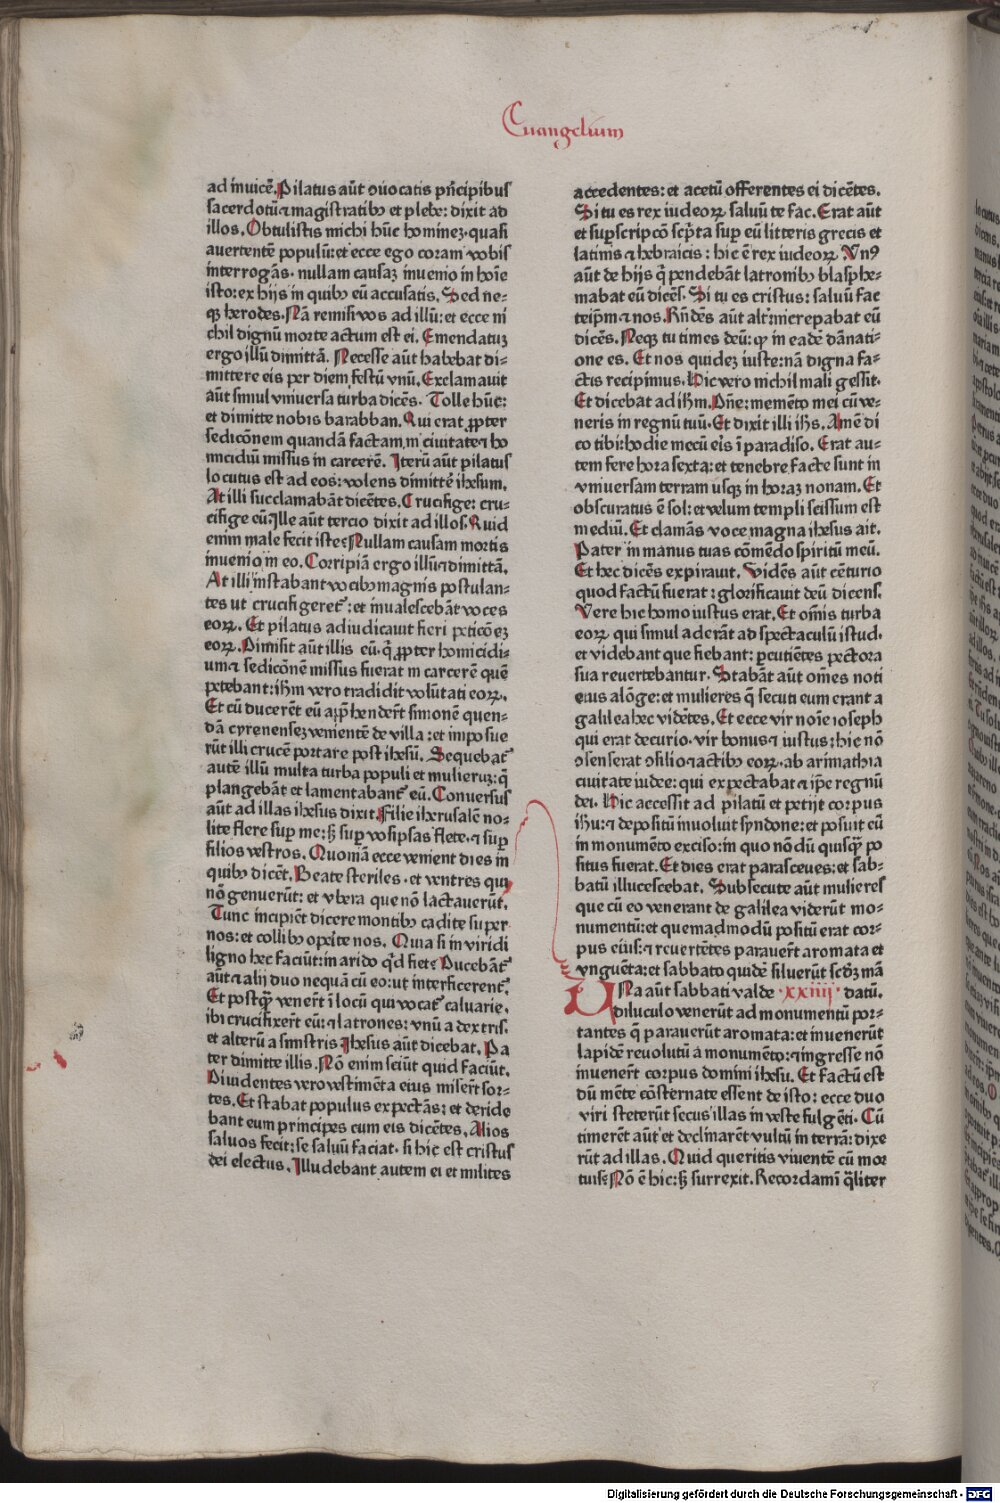 Euangelium
ad inuicē. Pilatus aūt ꝯuocatis prīcipibus
sacerdotū ⁊ magistratibꝯ et plebe: dixit ad
illos. Obtulistis michi hūc hominez. quasi
auertentē populū: et ecce ego coram vobis
interrogās. nullam causaz inuenio in hoīe
isto: ex hijs in quibꝯ eū accusatis. Sed ne⸗
qꝫ herodes. Nā remisi vos ad illū: et ecce ni
chil dignū morte actum est ei. Emendatuꝫ
ergo illū dimittā. Necesse aūt habebat di⸗
mittere eis per diem festū vnū. Exclamauit
aūt simul vniuersa turba dicēs. Tolle hūc:
et dimitte nobis barabban. Qui erat ꝓpter
sedicōnem quandā factam in ciuitate ⁊ ho
micidiū missus in carcerē. Iterū aūt pilatus
locutus est ad eos: volens dimitte᷒ ihesum.
At illi succlamabāt dicētes. Crucifige: cru⸗
cifige eū. Ille aūt tercio dixit ad illos. Quid
enim male fecit iste? Nullam causam mortis
inuenio in eo. Corripiā ergo illū ⁊ dimittā.
At illi instabant vocibꝯ magnis postulan⸗
tes ut crucifigeret᷒: et inualescebāt voces
eoꝝ. Et pilatus adiudicauit fieri peticōeꝫ
eoꝝ. Dimisit aūt illis eū. q̄ ꝓpter homicidi⸗
um ⁊ sedicōnē missus fuerat in carcerē quē
petebant: ihm vero tradidit volūtati eoꝝ.
Et cū ducerēt eū apꝑhenderūt simonē quen⸗
dā cyrenensez venientē de villa: et imposue
rūt illi crucē portare post ihesū. Sequebat᷒
autē illū multa turba populi et mulieruꝫ: q̄
plangebāt et lamentabant᷒ eū. Conuersus
aūt ad illas ihesus dixit. Filie iherusalē no⸗
lite flere suꝑ me: sꝫ suꝑ vosipsas flete. ⁊ suꝑ
filios vestros. Quoniā ecce venient dies in
quibꝯ dicēt. Beate steriles. et ventres qui
nō genuerūt: et vbera que nō lactauerūt.
Tunc incipiēt dicere montibꝯ cadite super
nos: et collibꝯ oꝑite nos. Quia si in viridi
ligno hec faciūt: in arido qͥd fiet? Ducebāt᷒
aūt ⁊ alij duo nequā cū eo: ut interficerent᷒.
Et postqͣꝫ venerūt ī locū qui vocat᷒ caluarie.
ibi crucifixerūt eū: ⁊ latrones: vnū a dextris.
et alterū a sinistris Ihesus aūt dicebat. Pa
ter dimitte illis. Nō enim sciūt quid faciūt.
Diuidentes vero vestimēta eius miserūt sor⸗
tes. Et stabat populus expectās: et deride
bant eum principes cum eis dicētes. Alios
saluos fecit: se saluū faciat. si hic est cristus
dei electus. Illudebant autem ei et milites
accedentes: et acetū offerentes ei dicētes.
Si tu es rex iudeoꝝ saluū te fac. Erat aūt
et suꝑscripcō scꝑta suꝑ eū litteris grecis et
latinis ⁊ hebraicis: hic ē rex iudeoꝝ. Vnꝰ
aūt de hijs q̄ pendebāt latronibꝯ blasphe⸗
mabat eū dicēs. Si tu es cristus: saluū fac
teip̄m ⁊ nos. Rn̄dēs aūt alt᷒: increpabat eū
dicēs. Neqꝫ tu times deū: qꝫ in eadē dānati⸗
one es. Et nos quideꝫ iuste: nā digna fa⸗
ctis recipimus. Hic vero nichil mali gessit.
Et dicebat ad ihm. Dn̄e: memēto mei cū ve⸗
neris in regnū tuū. Et dixit illi ihs. Amē di
co tibi: hodie mecū eris ī paradiso. Erat au⸗
tem fere hora sexta: et tenebre facte sunt in
vniuersam terram usqꝫ in horaꝫ nonam. Et
obscuratus ē sol: et velum templi scissum est
mediū. Et clamās voce magna ihesus ait.
Pater in manus tuas cōmēdo spiritū meū.
Et hec dicēs expirauit. Vidēs aūt cēturio
quod factū fuerat: glorificauit deū dicens.
Vere hic homo iustus erat. Et om̄is turba
eoꝝ qui simul aderāt ad spectaculū istud.
et videbant que fiebant: ꝑcutiētes pectora
sua reuertebantur. Stabāt aūt om̄es noti
eius alōge: et mulieres q̄ secuti eum erant a
galilea hec vidētes. Et ecce vir noīe ioseph
qui erat decurio. vir bonus ⁊ iustus: hic nō
ꝯsenserat ꝯsilio ⁊ actibꝯ eoꝝ. ab arimathia
ciuitate iudee: qui expectabat ⁊ ip̄e regnū
dei. Hic accessit ad pilatū et petijt corpus
ihu: ⁊ depositū inuoluit syndone: et posuit cū
in monumēto exciso: in quo nōdū quisqͣꝫ po
situs fuerat. Et dies erat parasceues: et sab⸗
batū illucescebat. Subsecute aūt mulieres
que cū eo venerant de galilea viderūt mo⸗
numentū: et quemadmodū positū erat cor⸗
pus eius: ⁊ reuertētes parauerūt aromata et
vnguēta: et sabbato quidē siluerūt scd̄ꝫ mā
datū. xxiiij
VNa aūt sabbati valde
diluculo venerūt ad monumentū por⸗
tantes q̄ parauerūt aromata: et inuenerūt
lapidē reuolutū a monumēto: ⁊ ingresse nō
inuenerūt corpus domini ihesu. Et factū est
dū mēte cōsternate essent de isto: ecce duo
viri steterūt secus illas in veste fulgēti. Cū
timerēt aūt et declinarēt vultū in terrā: dixe
rūt ad illas. Quid queritis viuentē cū mor
tuis? Nō ē hic: sꝫ surrexit. Recordamī qͣliter
Digitalisierung gefördert durch die Deutsche Forschungsgemeinschaft - DFG